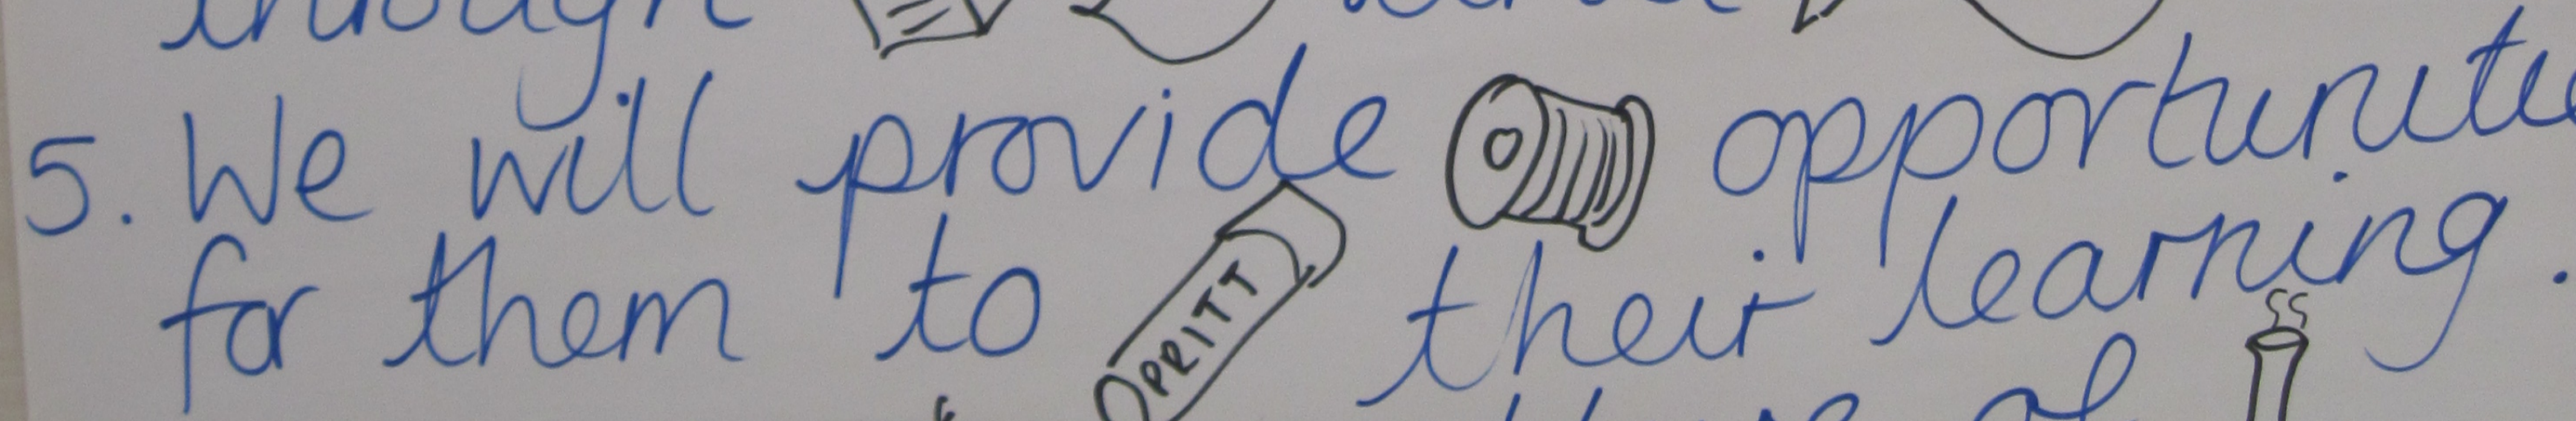 through
5. We will provide opportunitie
for them to PRITT their learning.
of